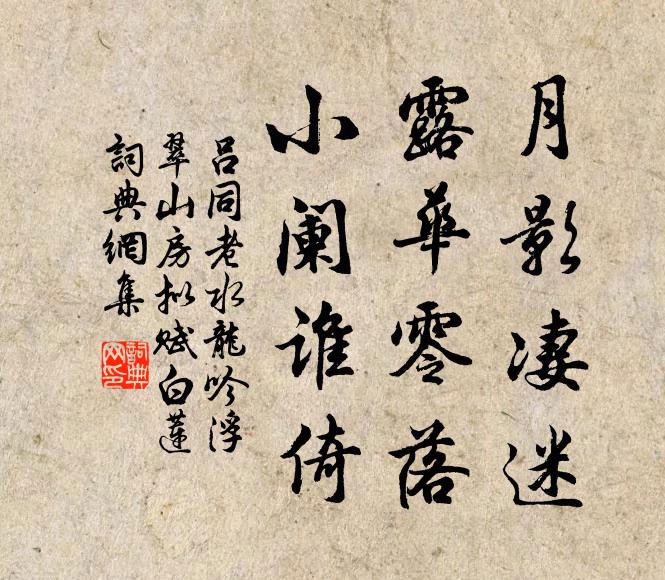 月影凄迷
露華零落
小阑誰倚
吕同老水龍吟浮
翠山房拟赋白蓮
詞典網集
詞典
网印